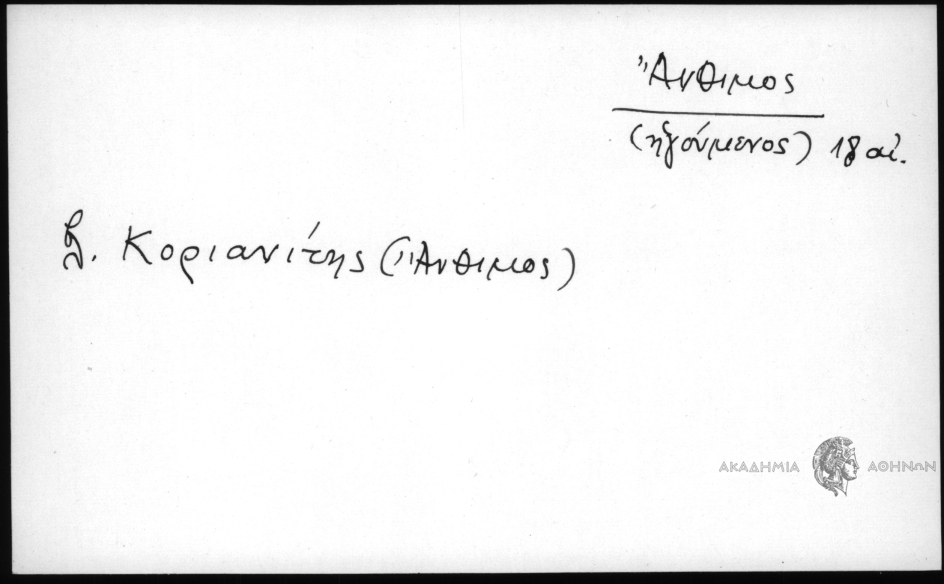 Ἄνθιμος
(ἡγούμενος) 18 αἰ.
βλ. Κοριανίτης (Ἄνθιμος)
ΑΚΑΔΗΜΙΑ ΑΘΗΝΩΝ